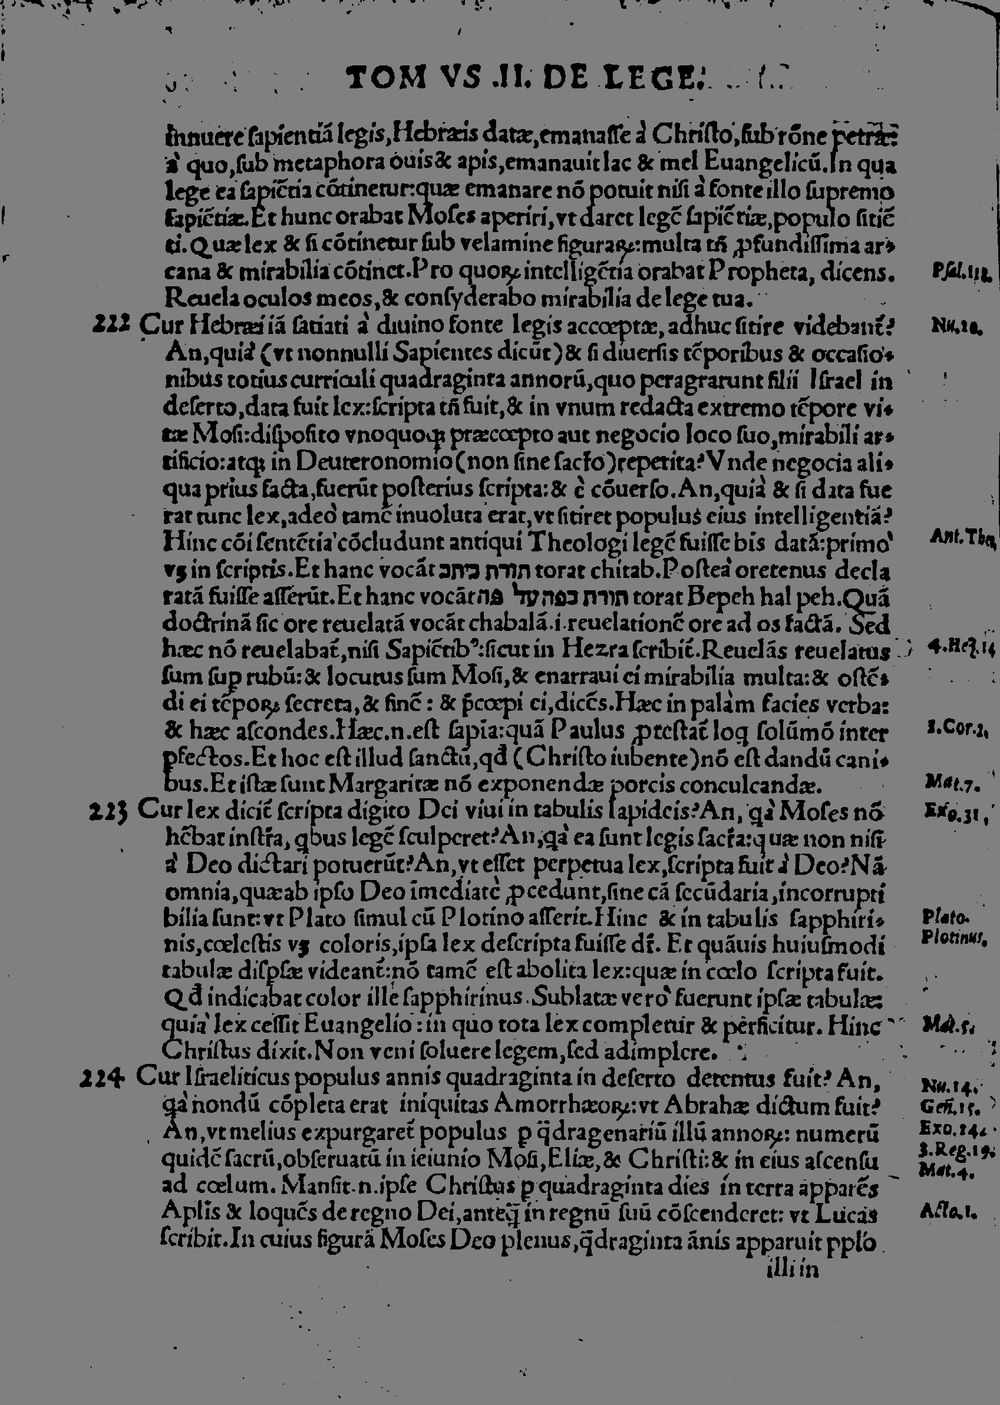 TOMVS .II. DE LEGE.
innuere sapientiã legis,Hebræis datæ,emanasse à Christo,sub rõne petræ:
à quo,sub metaphora ouis& apis,emanauit lac & mel Euangelicũ.In qua
lege ea sapiẽtia cõtinetur:quæ emanare nõ potuit nisi à fonte illo supremo
sapiẽtiæ.Et hunc orabat Moses aperiri,vt daret legẽ sapiẽtiæ,populo sitiẽ
ti.Quæ lex & si cõtinetur sub velamine figuraꝝ:multa tñ ꝓfundissima ar-
cana & mirabilia cõtinet.Pro quoꝝ intelligẽtia orabat Propheta, dicens. Psal.118.
Reuela oculos meos,& consyderabo mirabilia de lege tua.
222 Cur Hebræi iã satiati à diuino fonte legis accœptæ, adhuc sitire videbanť? Nu.20.
An,quià (vt nonnulli Sapientes dicũt)& si diuersis tẽporibus & occasio-
nibus totius curriculi quadraginta annorũ,quo peragrarunt filii Israel in
deserto,data fuit lex:scripta tñ fuit,& in vnum redacta extremo tẽpore vi-
tæ Mosi:disposito vnoquoqꝫ præcœpto aut negocio loco suo,mirabili ar-
tificio:atqꝫ in Deuteronomio(non sine sacŕo)repetita?Vnde negocia ali-
qua prius facta,fuerũt posterius scripta:& è cõuerso.An,quià & si data fue
rat tunc lex,adeò tamẽ inuoluta erat,vt sitiret populus eius intelligentiã?
Hinc cõi sentẽtia cõcludunt antiqui Theologi legẽ fuisse bis datã:primò Ant.Theo.
vꝫ in scriptis.Et hanc vocãt תורת כיתב torat chitab.Posteà oretenus decla
ratã fuisse asserũt.Et hanc vocãt תורת כפה על פה torat Bepeh hal peh.Quã
doctrinã sic ore reuelatã vocãt chabalã.i.reuelationẽ ore ad os factã. Sed
hæc nõ reuelabat,nisi Sapiẽtibꝰ:sicut in Hezra scribiť.Reuelãs reuelatus 4.Hez.14
sum suꝑ rubũ:& locutus sum Mosi,& enarraui ei mirabilia multa:& ostẽ-
di ei tẽpoꝝ secreta,& finẽ: & p̃cœpi ei,dicẽs.Hæc in palàm facies verba:
& hæc ascondes.Hæc.n.est sapĩa:quã Paulus ꝓtestať loq̃ solũmõ inter 1.Cor.2.
ꝑfectos.Et hoc est illud sanctũ,qď (Christo iubente)nõ est dandũ cani-
bus.Et istæ sunt Margaritæ nõ exponendæ porcis conculcandæ. Mat.7.
223 Cur lex diciť scripta digito Dei viui in tabulis lapideis?An, q̃à Moses nõ Exo.31.
hẽbat instr̃a, q̃bus legẽ sculperet?An,q̃à ea sunt legis sacŕa:quæ non nisi
à Deo dictari potuerũt?An,vt esset perpetua lex,scripta fuit à Deo?Nã
omnia,quæ ab ipso Deo ĩmediatè ꝓcedunt,sine cã secũdaria,incorrupti
bilia sunt:vt Plato simul cũ Plotino asserit.Hinc & in tabulis sapphiri- Plato.
nis,cœlestis vꝫ coloris,ipsa lex descripta fuisse dř. Et quãuis huiusmodi Plotinus.
tabulæ disꝑsæ videanť:nõ tamẽ est abolita lex:quæ in cœlo scripta fuit.
Qď indicabat color ille sapphirinus.Sublatæ verò fuerunt ipsæ tabulæ:
quià lex cessit Euangelio:in quo tota lex completur & perficitur. Hinc Mat.5.
Christus dixit.Non veni soluere legem,sed adimplere.
224 Cur Israeliticus populus annis quadraginta in deserto detentus fuit? An, Nu.14.
q̃à nondũ cõpleta erat iniquitas Amorrhæoꝝ:vt Abrahæ dictum fuit? Geñ.15.
An,vt melius expurgareť populus ꝑ q̃dragenariũ illũ annoꝝ: numerũ Exo.24.
quidẽ sacrũ,obseruatũ in ieiunio Mosi,Eliæ,& Christi:& in eius ascensu 3.Reg.19.
ad cœlum. Mansit.n.ipse Christus ꝑ quadraginta dies in terra apparẽs Mat.4.
Apl̃is & loquẽs de regno Dei,anteq̃ in regnũ suũ cõscenderet: vt Lucas Acto.1.
scribit.In cuius figurã Moses Deo plenus,q̃draginta ãnis apparuit pplo
illi in